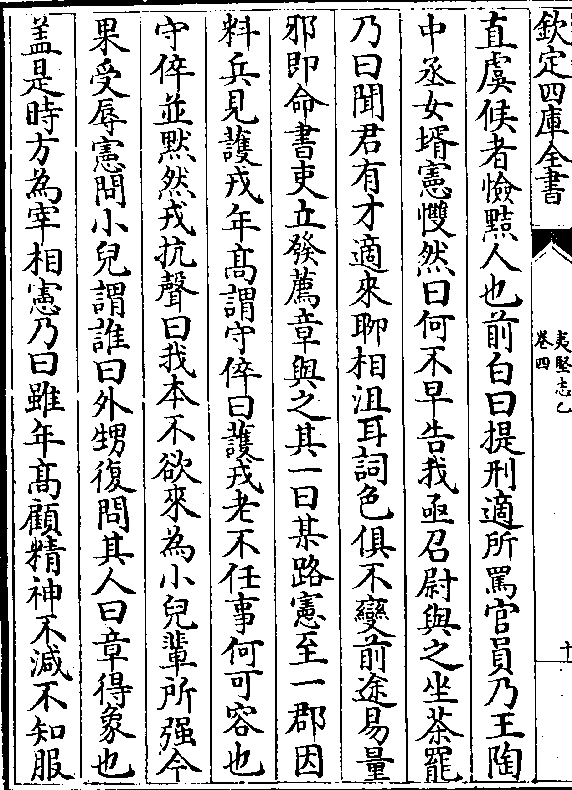 欽定四庫全書
夷堅志乙
卷四
十
直虞候者憸黠人也前白曰提刑適所罵官員乃王陶
中丞女壻憲戄然曰何不早告我亟召尉與之坐茶罷
乃曰聞君有才適來聊相沮耳詞色俱不變前途易量
邪即命書吏立發薦章與之其一曰某路憲至一郡因
料兵見護戎年髙謂守倅曰護戎老不任事何可容也
守倅並黙然戎抗聲曰我本不欲來為小兒輩所强今
果受辱憲問小兒謂誰曰外甥復問其人曰章得象也
盖是時方為宰相憲乃曰雖年髙顧精神不減不知服